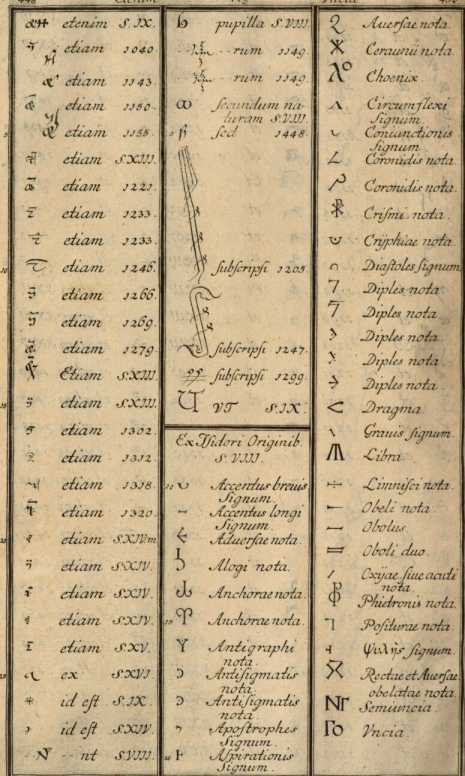 etenim S. IX.
etiam 1040.
etiam 1143
etiam 1150.
etiam 1155.
etiam S.XIII.
etiam 1221.
etiam 1233.
etiam 1233.
etiam 1246.
etiam 1266.
etiam 1269.
etiam 1279.
Etiam S.XIII.
etiam S.XIII.
etiam 1302.
etiam 1312
etiam 1318.
etiam 1320.
etiam S.XIV.m
etiam S.XIV.
etiam S.XIV.
etiam S.XIV.
etiam S.XV.
ex S.XVI.
id est S.IX.
id est S.XIV.
nt S.VIII.
pupilla S.VIII.
rum 1149.
rum 1149.
secundum na-
turam S.VIII.
sed 1448.
subscripsi 1205.
subscripsi 1247.
subscripsi 1299.
VT S.IX.
Ex Isidori Originib.
S. VIII.
Accentus breuis
Signum.
Accentus longi
Signum.
Aduersae nota.
Alogi nota.
Anchorae nota.
Anchorae nota.
Antigraphi
nota.
Antisigmatis
nota.
Antisigmatis
nota.
Apostrophes
Signum.
Aspirationis
Signum.
Auersae nota.
Ceraunii nota.
Choenix.
Circumflexi
Signum.
Coniunctionis
Signum.
Coronidis nota.
Coronidis nota.
Crismi nota.
Cryphiae nota.
Diastoles signum.
Diples nota.
Diples nota
Diples nota.
Diples nota.
Diples nota.
Dragma.
Grauis signum.
Libra.
Limnisci nota.
Obeli nota.
Obolus.
Oboli duo.
Oxyae siue acuti
nota.
Phietronis nota.
Positurae nota.
Ψυλῆς signum.
Rectae et Auersae
obelatae nota.
Semiuncia.
Vncia.